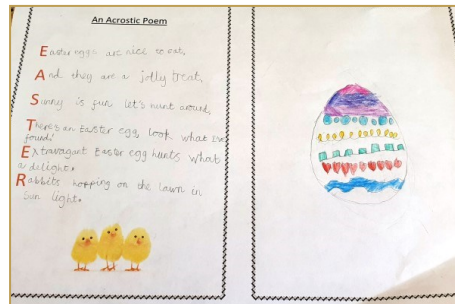 An Acrostic Poem
Easter eggs are nice to eat,
And they are a jolly treat,
Sunny is fun let's hunt around,
There's an Easter egg, look what I've
found!
Extravagant Easter egg hunts what
a delight.
Rabbits hopping on the lawn in
sun light.